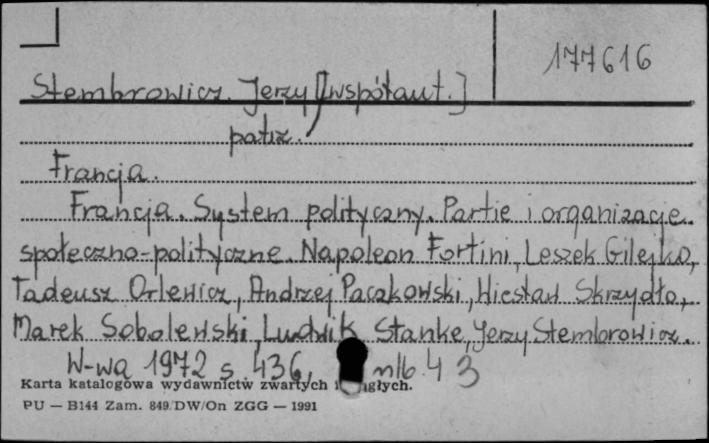 177616
Stembrowicz Jerzy [współaut.]
patrz.
Francja.
Francja. System polityczny. Partie i organizacje
społeczno-polityczne. Napoleon Fortini, Leszek Gilejko,
Tadeusz Orlewicz, Andrzej Paczkowski, Wiesław Skrzydło,
Marek Sobolewski, Ludwik Stanke, Jerzy Stembrowicz.
W-wa 1972 s. 436, nlb. 4 3
Karta katalogowa wydawnictw zwartych
PU — B144 Zam. 849/DW/On ZGG — 1991